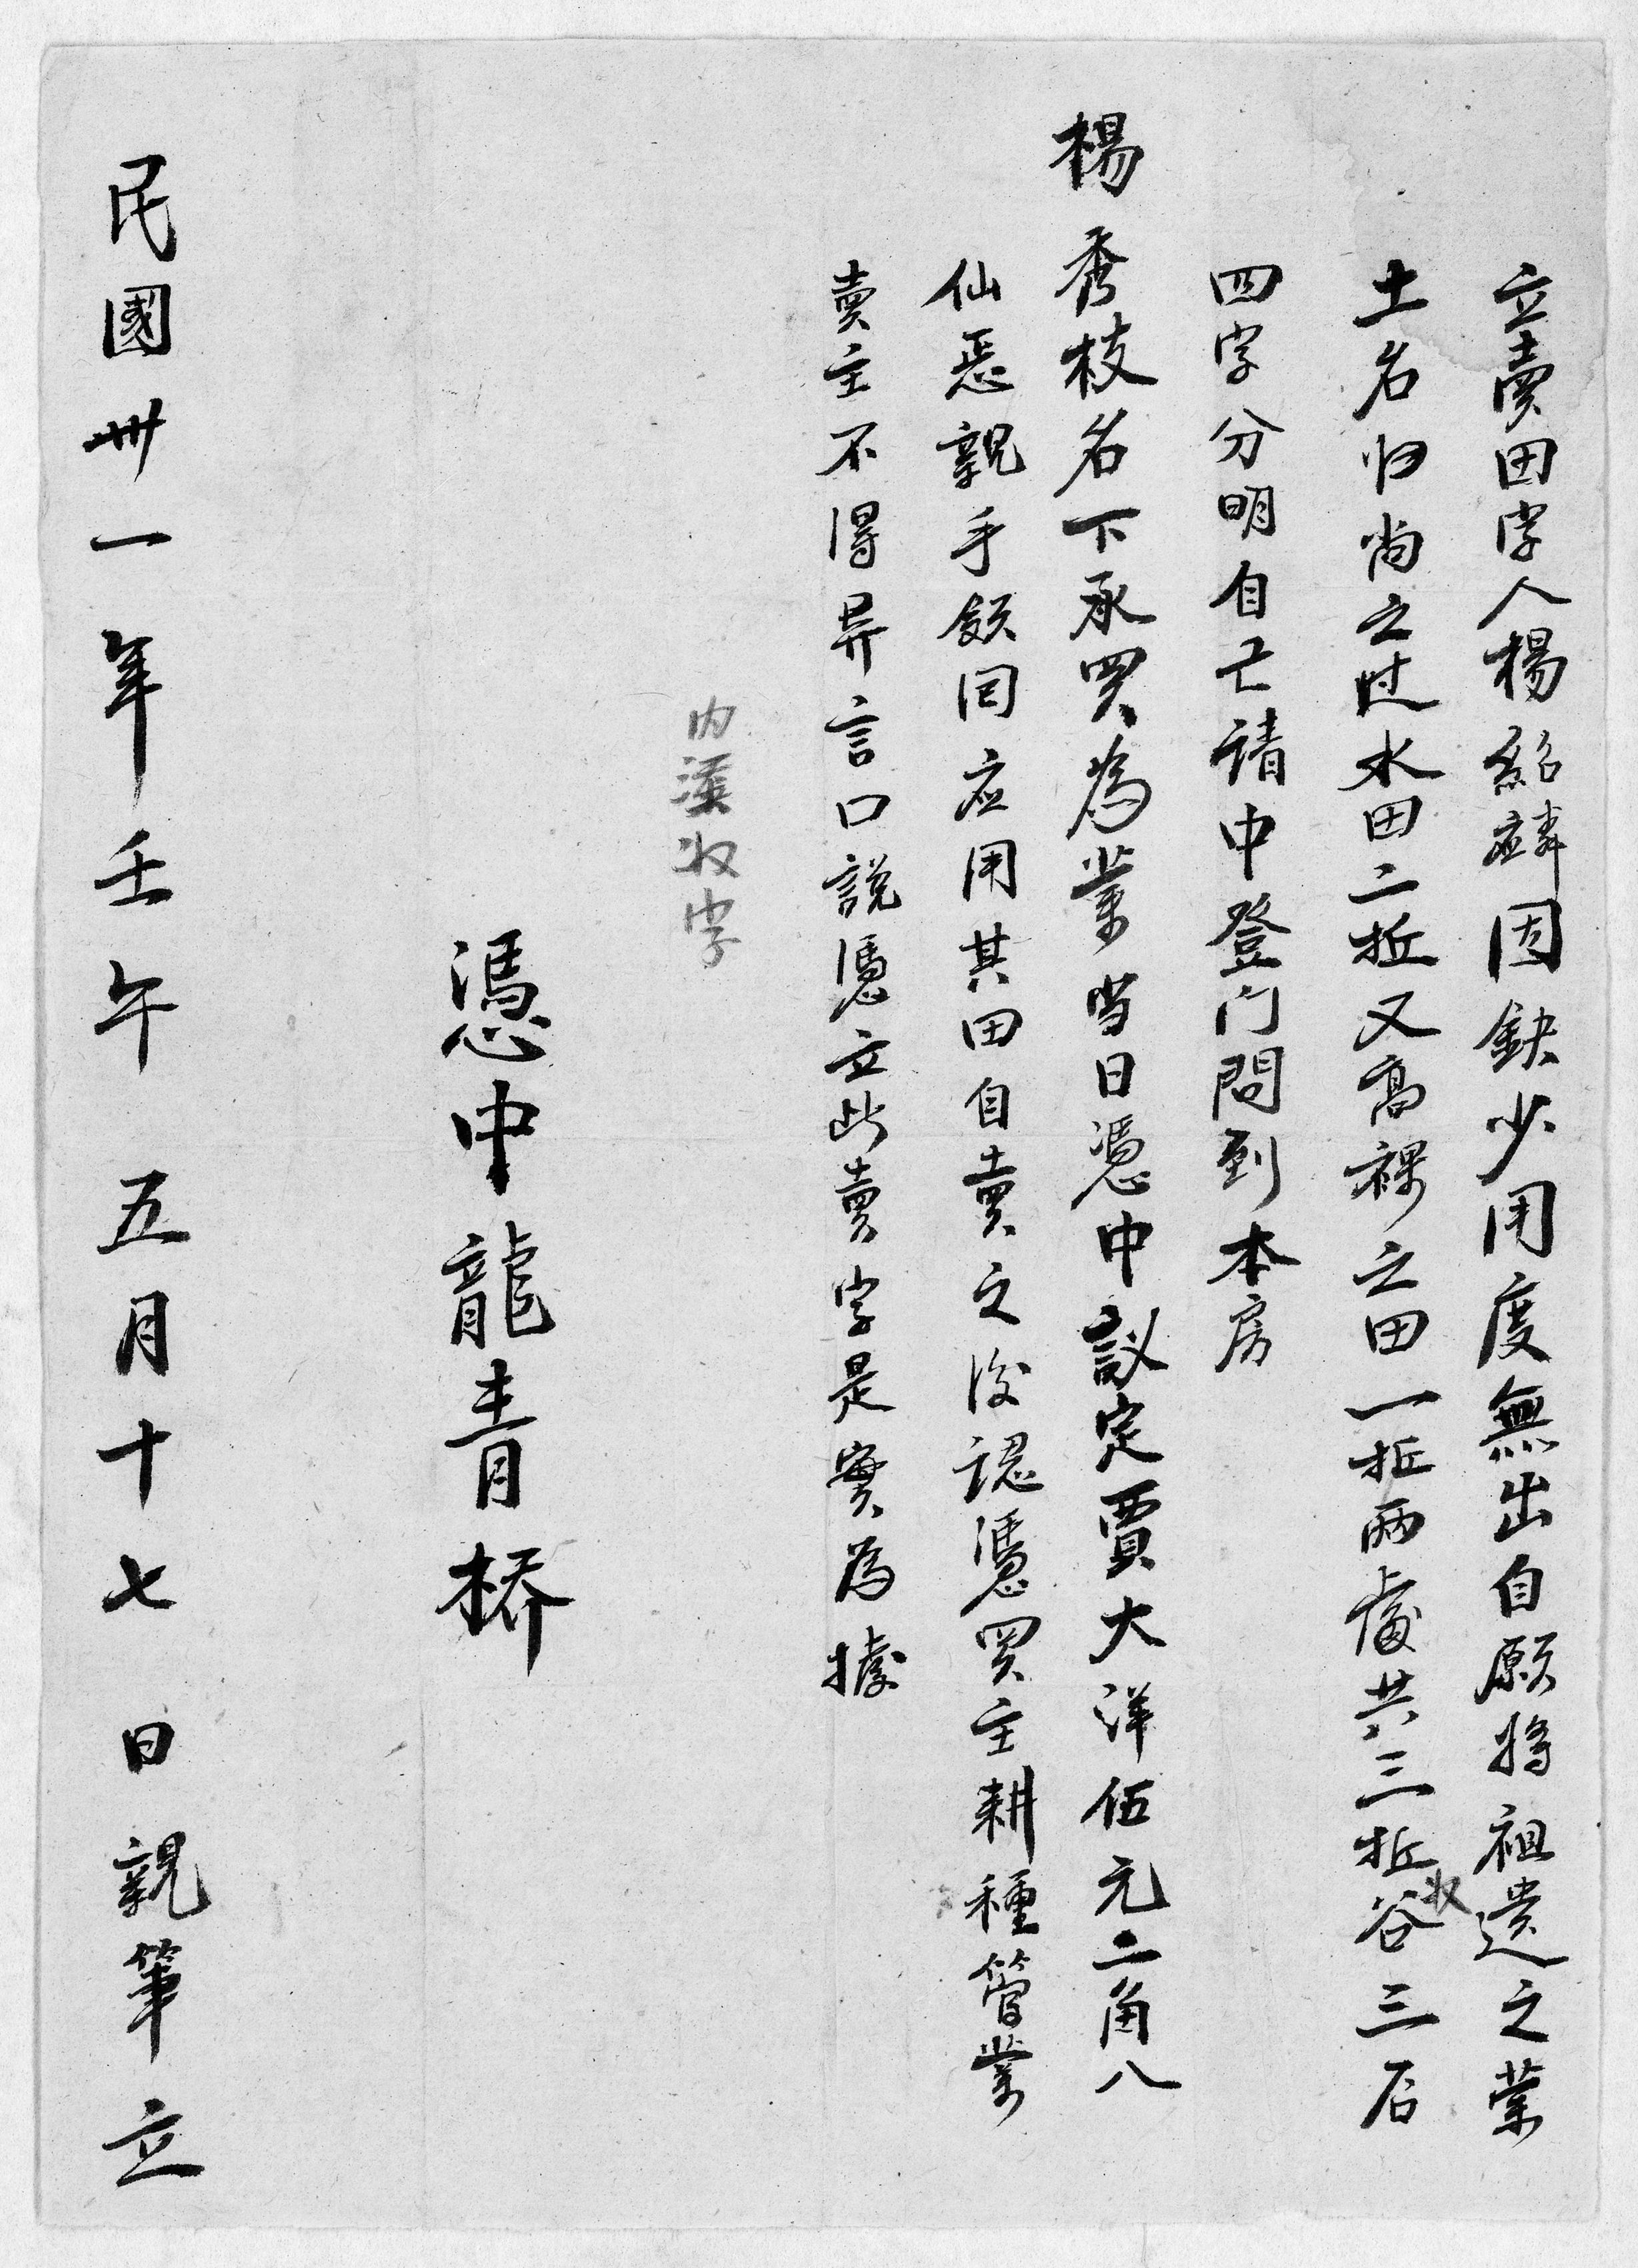 立賣田字人楊紹麟因缺少用度無出自願将祖遺之業
土名归尚之过水田二坵又高祼之田一坵兩處共三坵收谷三石
四字分明自亡請中登门問到本房
楊秀枝名下承買為業当日憑中議定賈大洋伍元二角八
仙悪親手領囬应用其田自賣之後認憑買主耕種管業
賣主不得异言口説憑立此賣字是實為據
内添收字
憑中龍青桥
民國卅一年壬午五月十七日親筆立